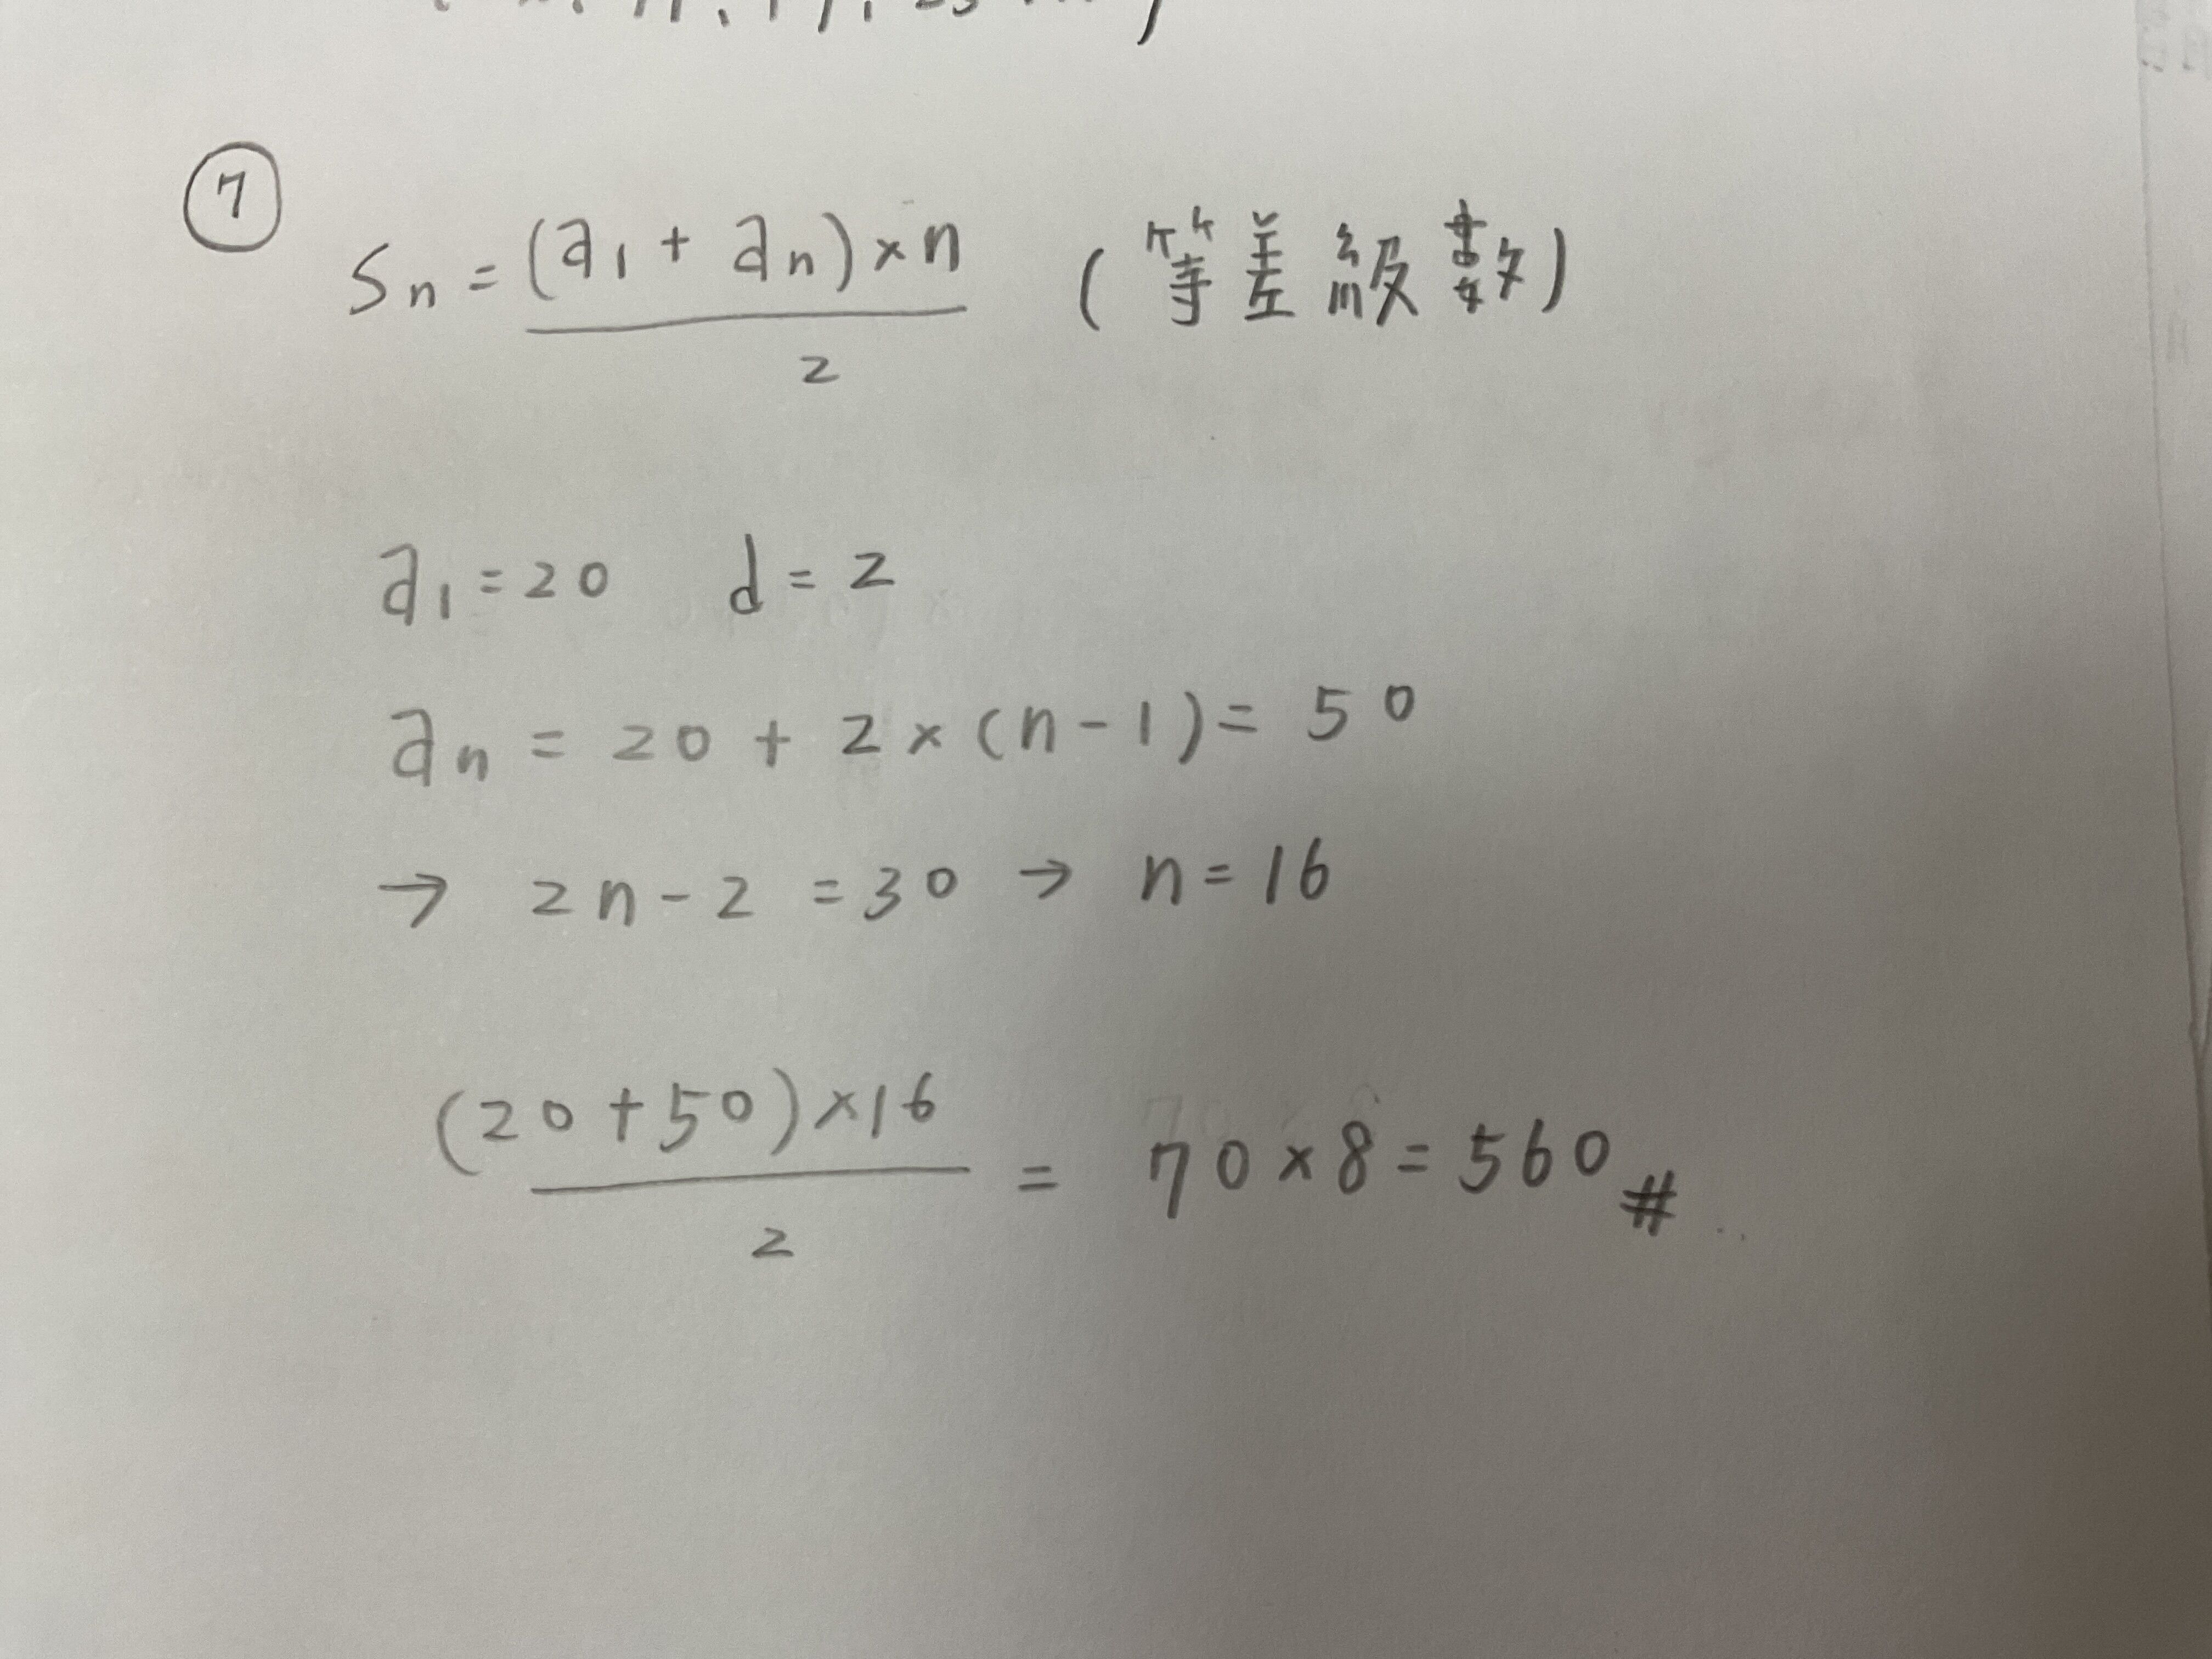 ⑦
Sn = (a1 + an) × n (等差級數)
2
a1 = 20 d = 2
an = 20 + 2 × (n - 1) = 50
→ 2n - 2 = 30 → n = 16
(20 + 50) × 16 = 70 × 8 = 560 #
2